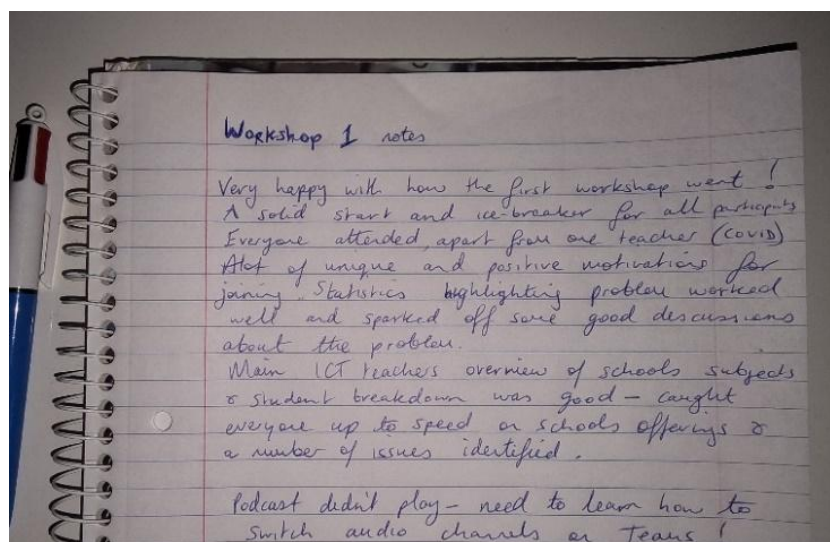 Workshop 1 notes
Very happy with how the first workshop went !
A solid start and ice-breaker for all particpants
Everyone attended, apart from one teacher (COVID)
Alot of unique and positive motivations for
joining. Statistics highlighting problem worked
well and sparked off some good discussions
about the problem.
Main ICT teachers overview of schools subjects
& student breakdown was good – caught
everyone up to speed on schools offerings &
a number of issues identified.
Podcast didn't play – need to learn how to
switch audio channels on Teams !